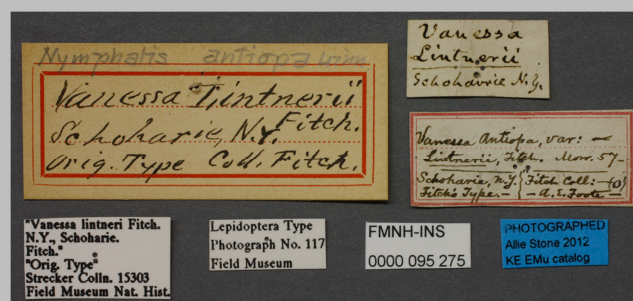 Nymphalis antiopa Linn
Vanessa Lintnerii
Fitch.
Schoharie, N.Y.
Orig. Type Coll. Fitch.
Vanessa
Lintnerii
Schoharie N.Y.
Vanessa Antiopa, var:
Lintnerii, Fitch. Morr. 57-
Schoharie, N.Y. Fitch Coll:-
Fitch's Type.- - A.E. Foote
"Vanessa lintneri Fitch.
N.Y., Schoharie.
Fitch."
"Orig. Type"
Strecker Colln. 15303
Field Museum Nat. Hist.
Lepidoptera Type
Photograph No. 117
Field Museum
FMNH-INS
0000 095 275
PHOTOGRAPHED
Allie Stone 2012
KE EMu catalog